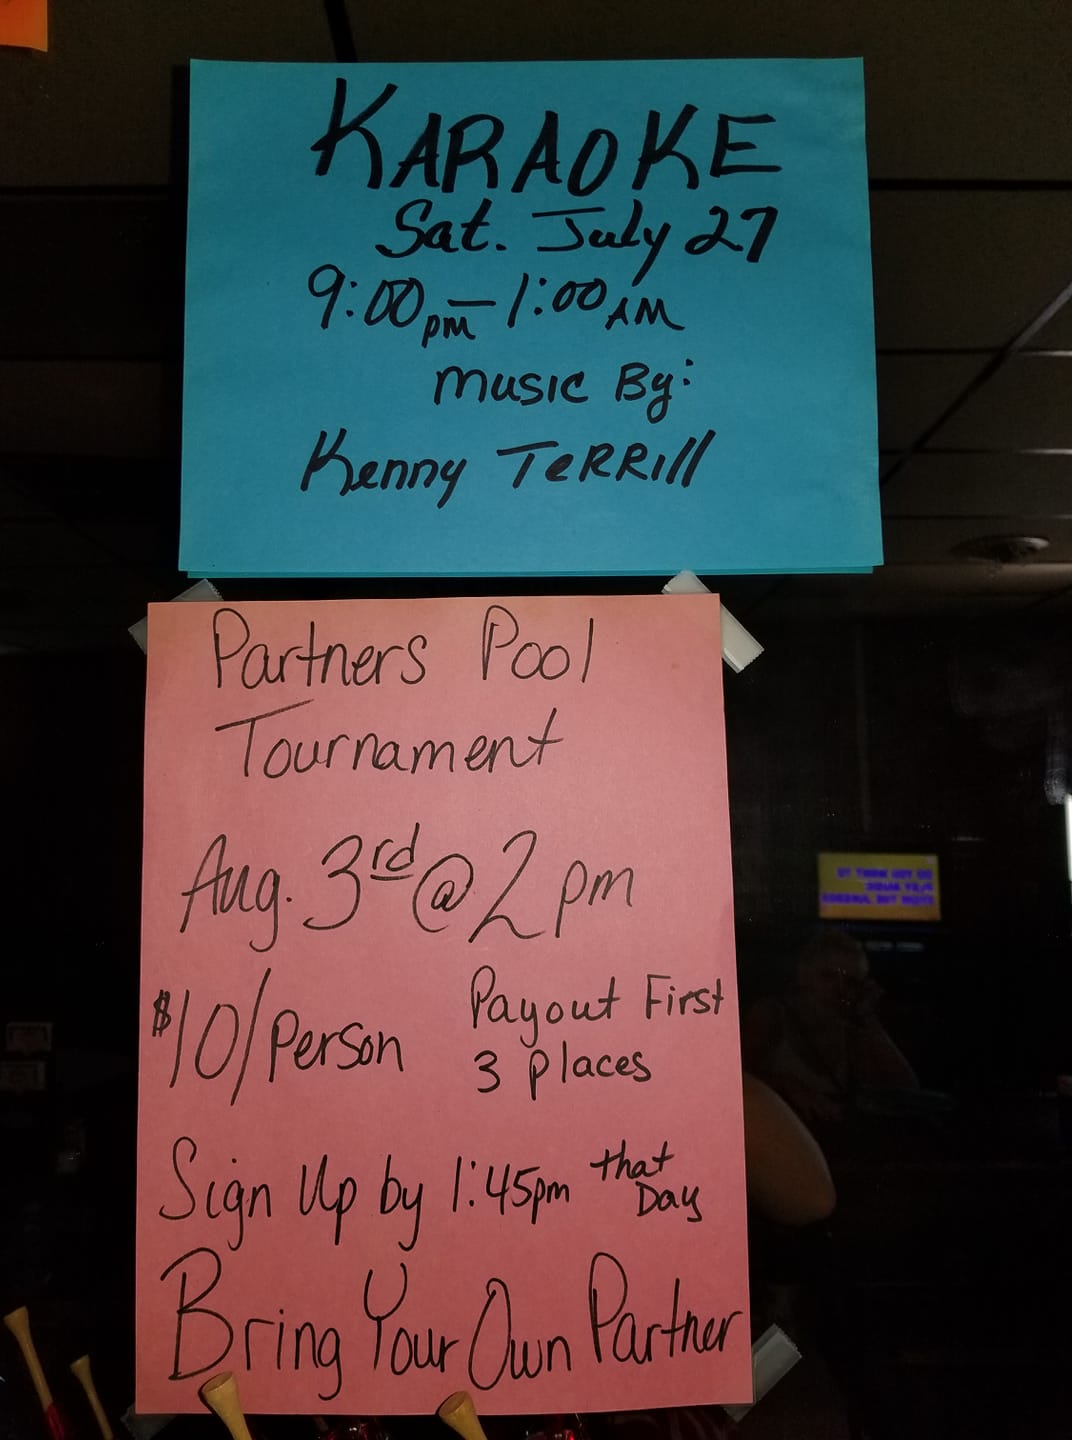 KARAOKE
Sat. July 27
9:00pm - 1:00AM
Music By:
Kenny TeRRill
Partners Pool
Tournament
Aug. 3rd @ 2 pm
$10/Person
Payout First
3 places
Sign Up by 1:45pm that Day
Bring Your Own Partner